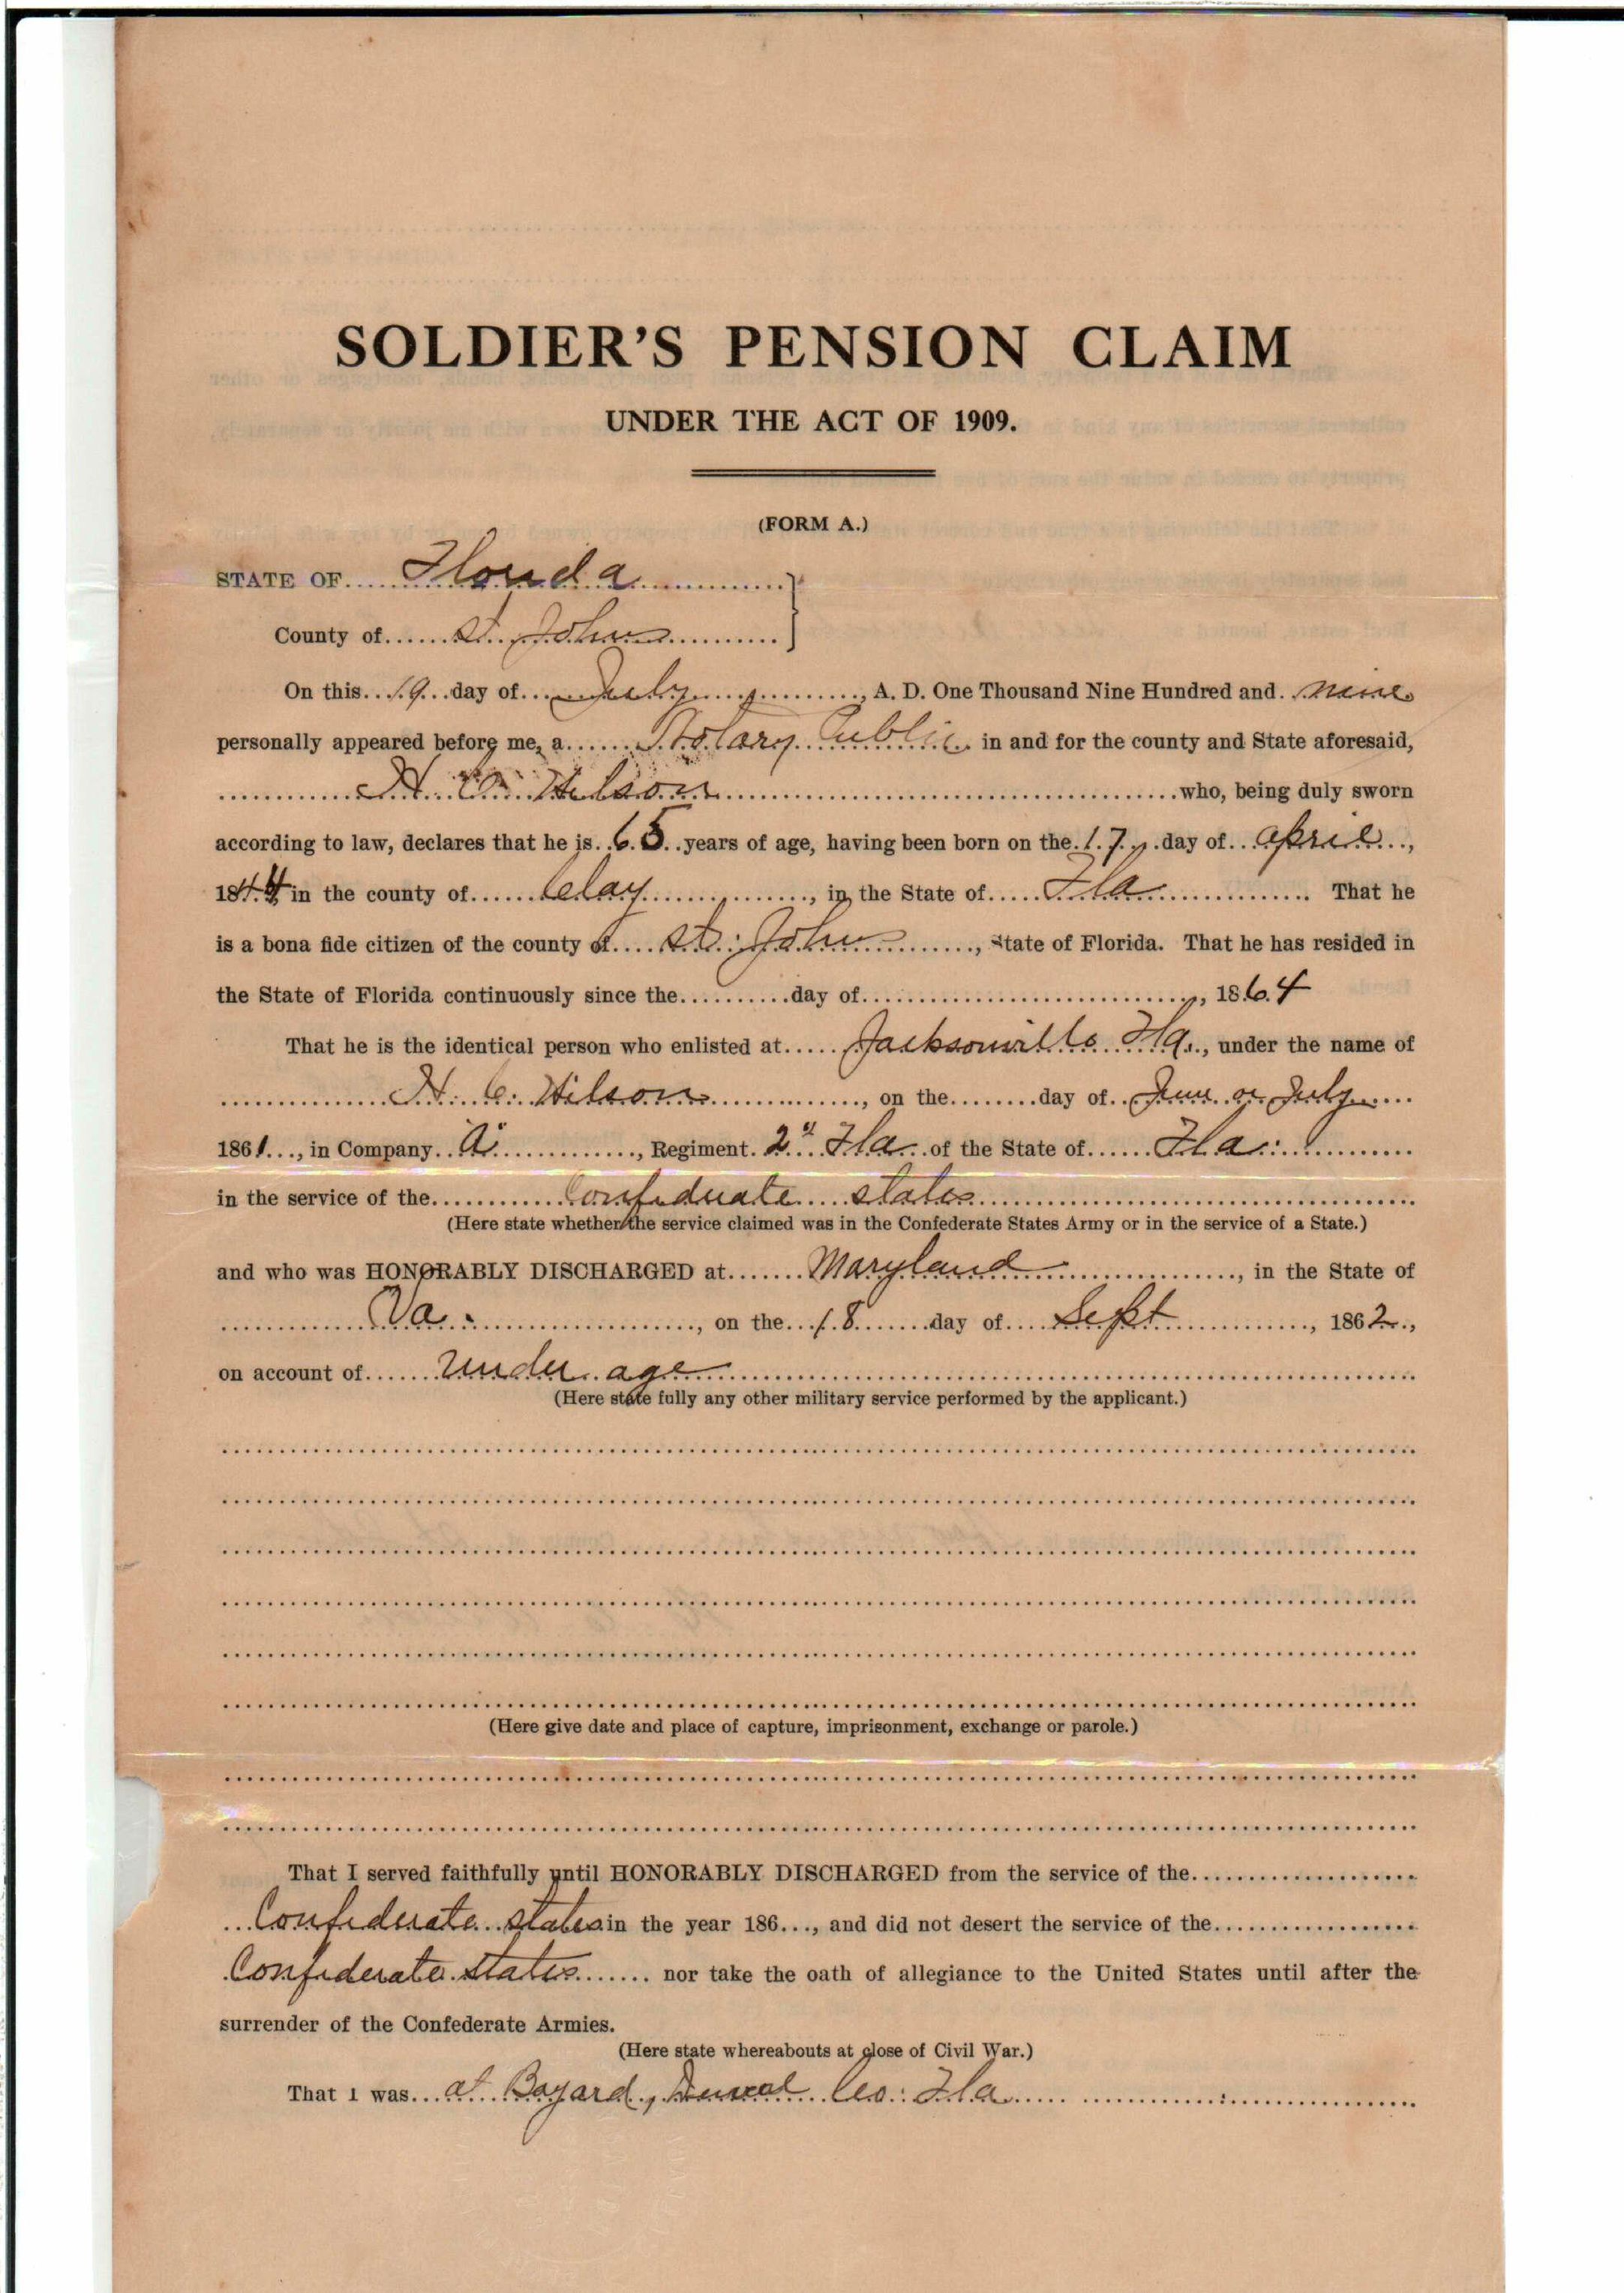 SOLDIER'S PENSION CLAIM
UNDER THE ACT OF 1909.
(FORM A.)
STATE OF Florida
County of St. Johns
On this 19 day of July, A. D. One Thousand Nine Hundred and nine
personally appeared before me, a Notary Public in and for the county and State aforesaid,
H. C. Wilson who, being duly sworn
according to law, declares that he is 65 years of age, having been born on the 17 day of april,
1844 in the county of Clay, in the State of Fla. That he
is a bona fide citizen of the county of St. John, State of Florida. That he has resided in
the State of Florida continuously since the day of, 1864
That he is the identical person who enlisted at Jacksonville Fla., under the name of
H. C. Wilson, on the day of June or July
1861, in Company A, Regiment 2" Fla of the State of Fla.
in the service of the Confederate states
(Here state whether the service claimed was in the Confederate States Army or in the service of a State.)
and who was HONORABLY DISCHARGED at Maryland, in the State of
Va., on the 18 day of Sept, 1862,
on account of Under age
(Here state fully any other military service performed by the applicant.)
(Here give date and place of capture, imprisonment, exchange or parole.)
That I served faithfully until HONORABLY DISCHARGED from the service of the
Confederate states in the year 186, and did not desert the service of the
Confederate states nor take the oath of allegiance to the United States until after the
surrender of the Confederate Armies.
(Here state whereabouts at close of Civil War.)
That I was at Bayard, Duval Co. Fla